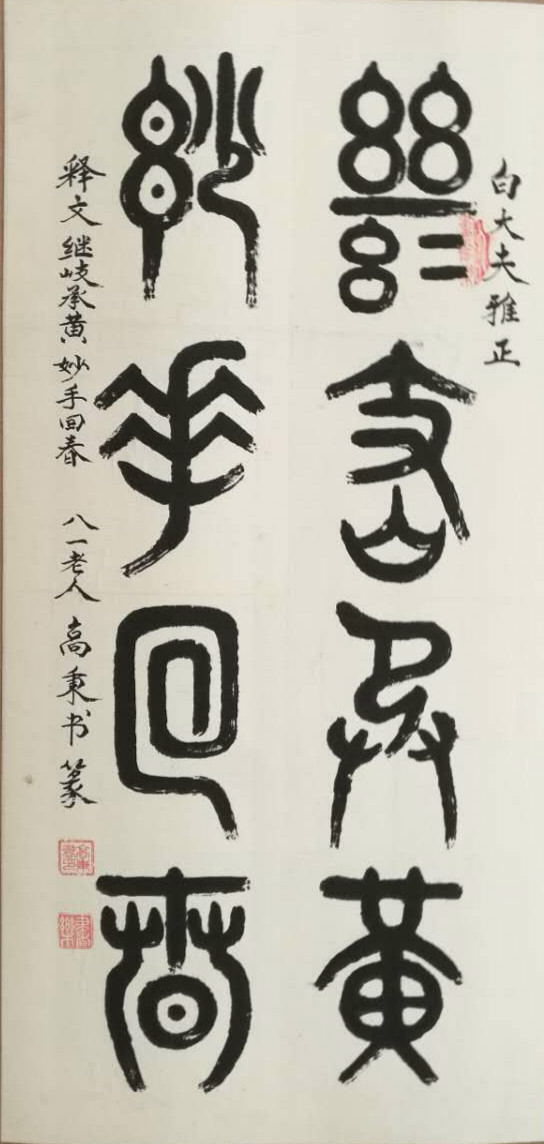 白大夫雅正
继岐承黄
妙手回春
释文继岐承黄妙手回春 八一老人高秉书篆